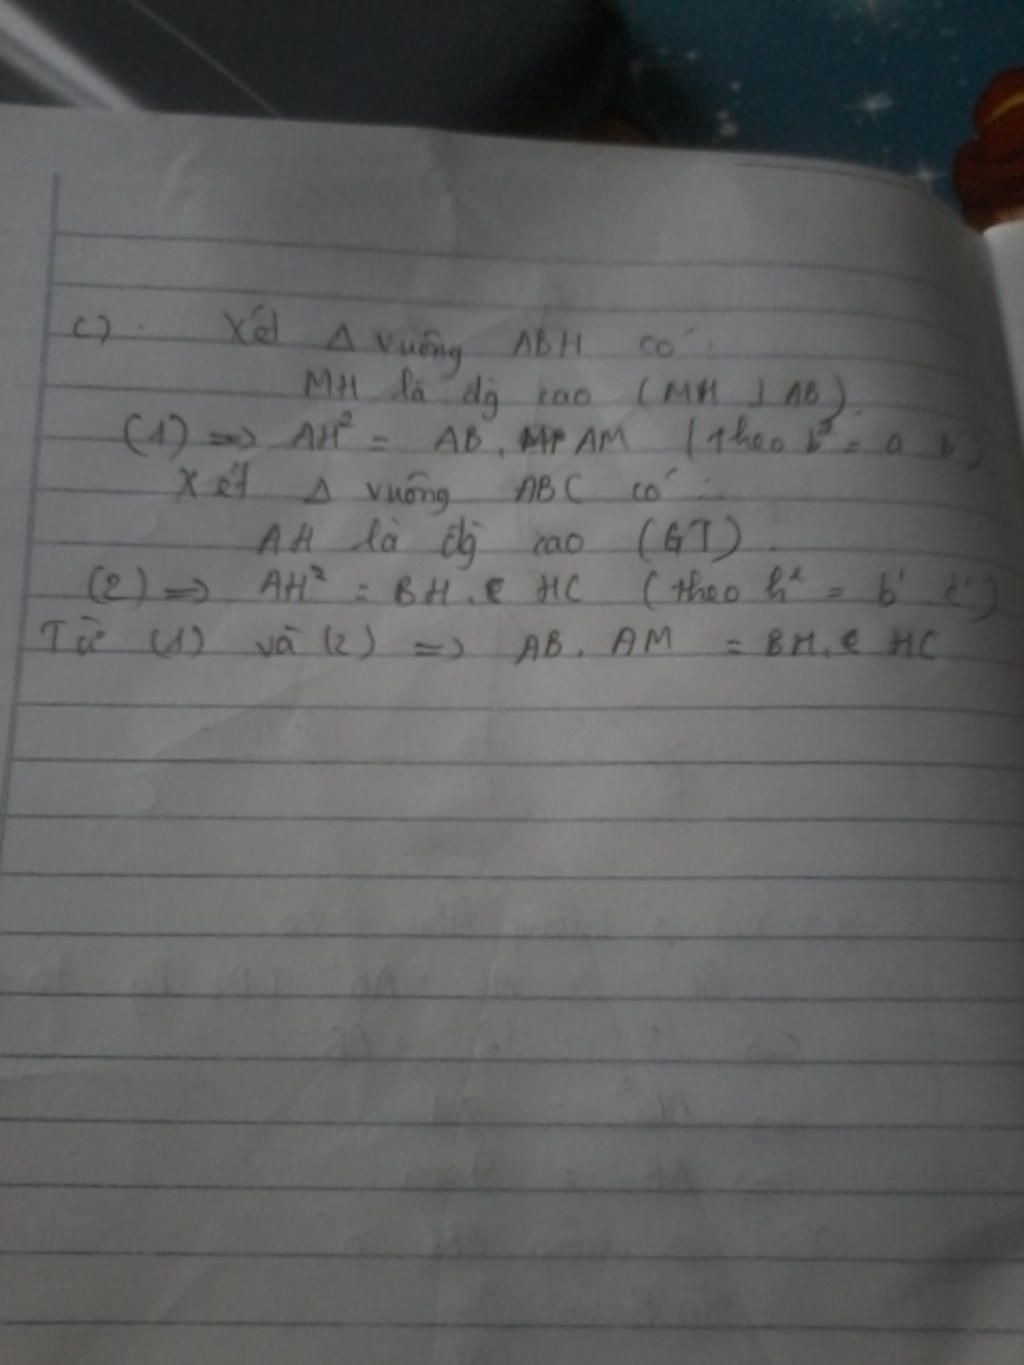 c). Xét Δ vuông ABH có:
MH là đg cao (MH ⊥ AB).
(1) => AH² = AB. AM (theo b² = a b')
Xét Δ vuông ABC có:
AH là đg cao (GT).
(2) => AH² = BH. HC (theo h² = b' c')
Từ (1) và (2) => AB. AM = BH. HC